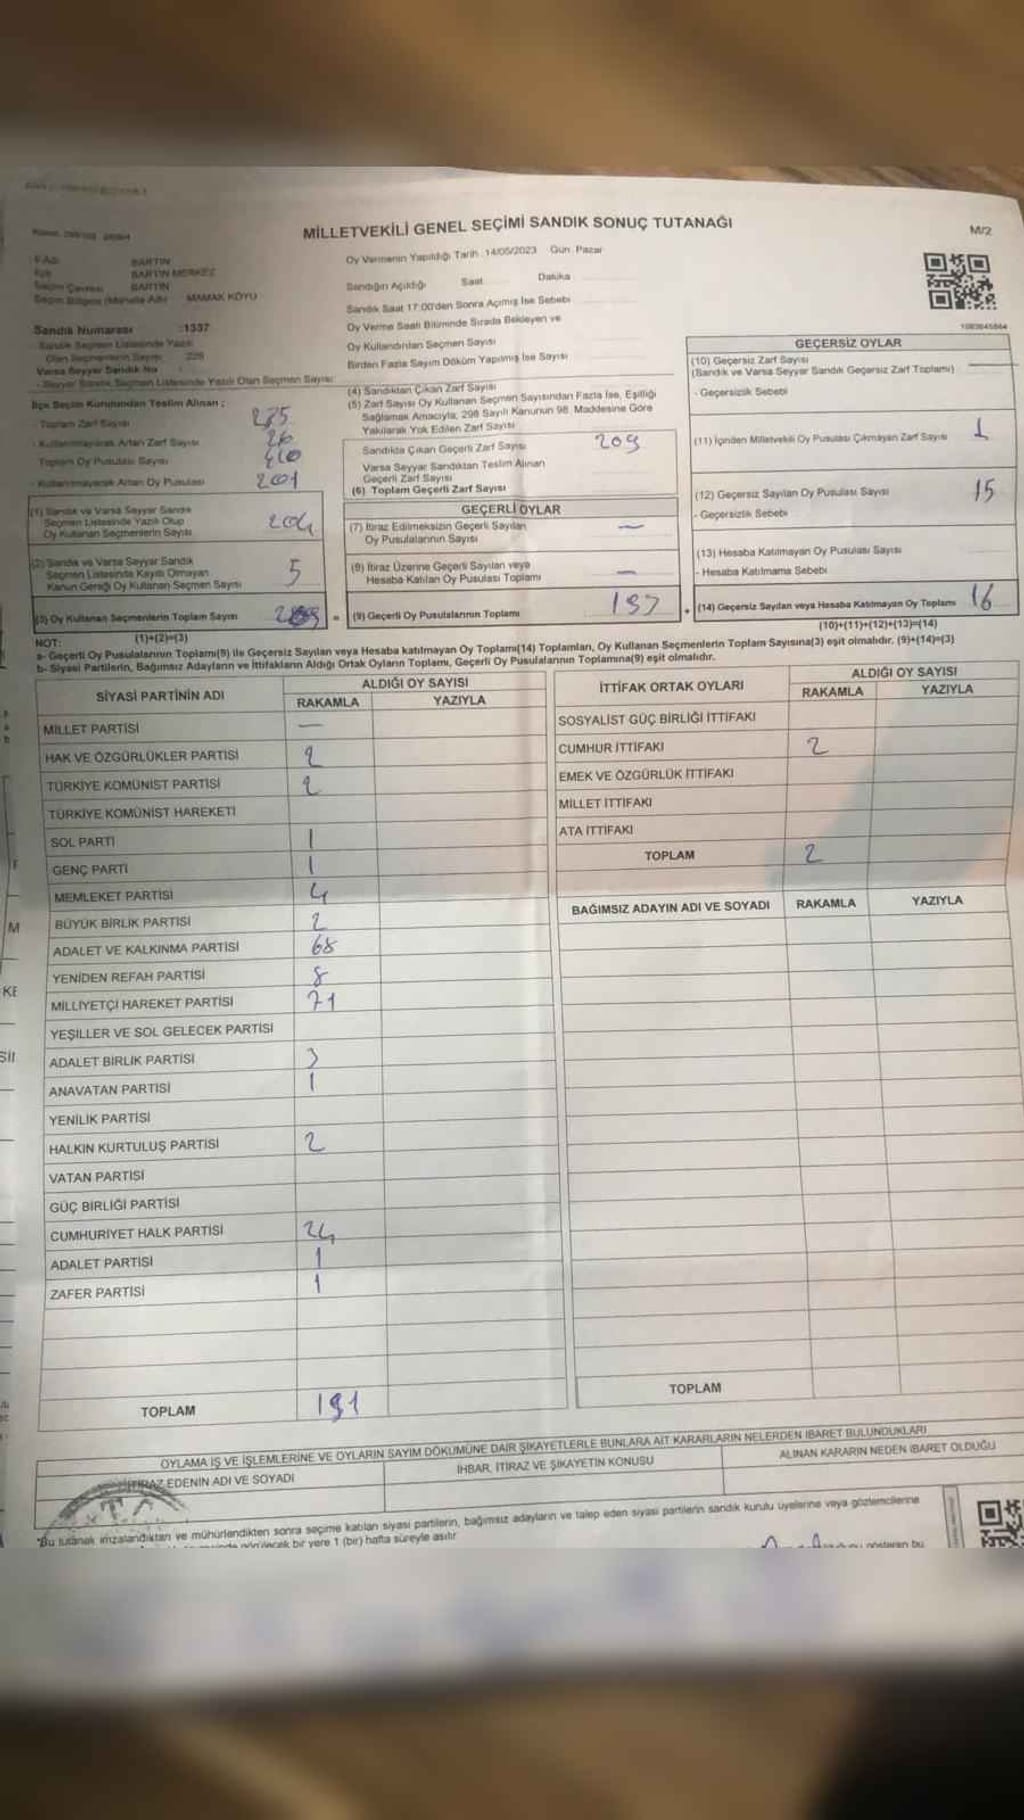 MİLLETVEKİLİ GENEL SEÇİMİ SANDIK SONUÇ TUTANAĞI
M/2
BARTIN
BARTIN MERKEZ
BARTIN
MAMAK KÖYÜ
Oy Vermenin Yapıldığı Tarih : 14/05/2023 Gün: Pazar
Sandığın Açıldığı Saat Dakika
Sandık Saat 17:00'den Sonra Açımış İse Sebebi
Oy Verme Saati Bitiminde Sırada Bekleyen ve
Oy Kullandırılan Seçmen Sayısı
Birden Fazla Sayım Döküm Yapılmış İse Sayısı
Sandık Numarası :1337
Sandık Seçmen Listesinde Yazılı
Olan Seçmenlerin Sayısı
Varsa Seyyar Sandık No
- Seyyar Sandık Seçmen Listesinde Yazılı Olan Seçmen Sayısı
İlçe Seçim Kurulundan Teslim Alınan :
- Toplam Zarf Sayısı
- Kullanılmayarak Artan Zarf Sayısı
Toplam Oy Pusulası Sayısı
- Kullanılmayarak Artan Oy Pusulası 201
(1) Sandık ve Varsa Seyyar Sandık
Seçmen Listesinde Yazılı Olup
Oy Kullanan Seçmenlerin Sayısı 204
(2) Sandık ve Varsa Seyyar Sandık
Seçmen Listesinde Kayıtlı Olmayan
Kanun Gereği Oy Kullanan Seçmen Sayısı 5
(3) Oy Kullanan Seçmenlerin Toplam Sayısı
(1)+(2)=(3)
(4) Sandıktan Çıkan Zarf Sayısı
(5) Zarf Sayısı Oy Kullanan Seçmen Sayısından Fazla İse, Eşitliği
Sağlamak Amacıyla, 298 Sayılı Kanunun 98. Maddesine Göre
Yakılarak Yok Edilen Zarf Sayısı
Sandıkta Çıkan Geçerli Zarf Sayısı 209
Varsa Seyyar Sandıktan Teslim Alınan
Geçerli Zarf Sayısı
(6) Toplam Geçerli Zarf Sayısı
GEÇERLİ OYLAR
(7) İtiraz Edilmeksizin Geçerli Sayılan
Oy Pusulalarının Sayısı —
(8) İtiraz Üzerine Geçerli Sayılan veya
Hesaba Katılan Oy Pusulası Toplamı —
= (9) Geçerli Oy Pusulalarının Toplamı 197
1083645864
GEÇERSİZ OYLAR
(10) Geçersiz Zarf Sayısı
(Sandık ve Varsa Seyyar Sandık Geçersiz Zarf Toplamı) —
- Geçersizlik Sebebi
(11) İçinden Milletvekili Oy Pusulası Çıkmayan Zarf Sayısı 1
(12) Geçersiz Sayılan Oy Pusulası Sayısı 15
- Geçersizlik Sebebi
(13) Hesaba Katılmayan Oy Pusulası Sayısı
- Hesaba Katılmama Sebebi
+ (14) Geçersiz Sayılan veya Hesaba Katılmayan Oy Toplamı 16
(10)+(11)+(12)+(13)=(14)
NOT:
a- Geçerli Oy Pusulalarının Toplamı(9) ile Geçersiz Sayılan veya Hesaba katılmayan Oy Toplamı(14) Toplamları, Oy Kullanan Seçmenlerin Toplam Sayısına(3) eşit olmalıdır. (9)+(14)=(3)
b- Siyasi Partilerin, Bağımsız Adayların ve İttifakların Aldığı Ortak Oyların Toplamı, Geçerli Oy Pusulalarının Toplamına(9) eşit olmalıdır.
SİYASİ PARTİNİN ADI
ALDIĞI OY SAYISI
RAKAMLA YAZIYLA
MİLLET PARTİSİ —
HAK VE ÖZGÜRLÜKLER PARTİSİ 2
TÜRKİYE KOMÜNİST PARTİSİ 2
TÜRKİYE KOMÜNİST HAREKETİ
SOL PARTİ 1
GENÇ PARTİ 1
MEMLEKET PARTİSİ 4
BÜYÜK BİRLİK PARTİSİ 2
ADALET VE KALKINMA PARTİSİ 68
YENİDEN REFAH PARTİSİ 8
MİLLİYETÇİ HAREKET PARTİSİ 71
YEŞİLLER VE SOL GELECEK PARTİSİ
ADALET BİRLİK PARTİSİ 3
ANAVATAN PARTİSİ 1
YENİLİK PARTİSİ
HALKIN KURTULUŞ PARTİSİ 2
VATAN PARTİSİ
GÜÇ BİRLİĞİ PARTİSİ
CUMHURİYET HALK PARTİSİ 24
ADALET PARTİSİ 1
ZAFER PARTİSİ 1
TOPLAM 191
İTTİFAK ORTAK OYLARI
ALDIĞI OY SAYISI
RAKAMLA YAZIYLA
SOSYALİST GÜÇ BİRLİĞİ İTTİFAKI
CUMHUR İTTİFAKI 2
EMEK VE ÖZGÜRLÜK İTTİFAKI
MİLLET İTTİFAKI
ATA İTTİFAKI
TOPLAM 2
BAĞIMSIZ ADAYIN ADI VE SOYADI RAKAMLA YAZIYLA
TOPLAM
OYLAMA İŞ VE İŞLEMLERİNE VE OYLARIN SAYIM DÖKÜMÜNE DAİR ŞİKAYETLERLE BUNLARA AİT KARARLARIN NELERDEN İBARET BULUNDUKLARI
İTİRAZ EDENİN ADI VE SOYADI
İHBAR, İTİRAZ VE ŞİKAYETİN KONUSU
ALINAN KARARIN NEDEN İBARET OLDUĞU
*Bu tutanak imzalandıktan ve mühürlendikten sonra seçime katılan siyasi partilerin, bağımsız adayların ve talep eden siyasi partilerin sandık kurulu üyelerine veya gözlemcilerine
görülecek bir yere 1 (bir) hafta süreyle asılır.